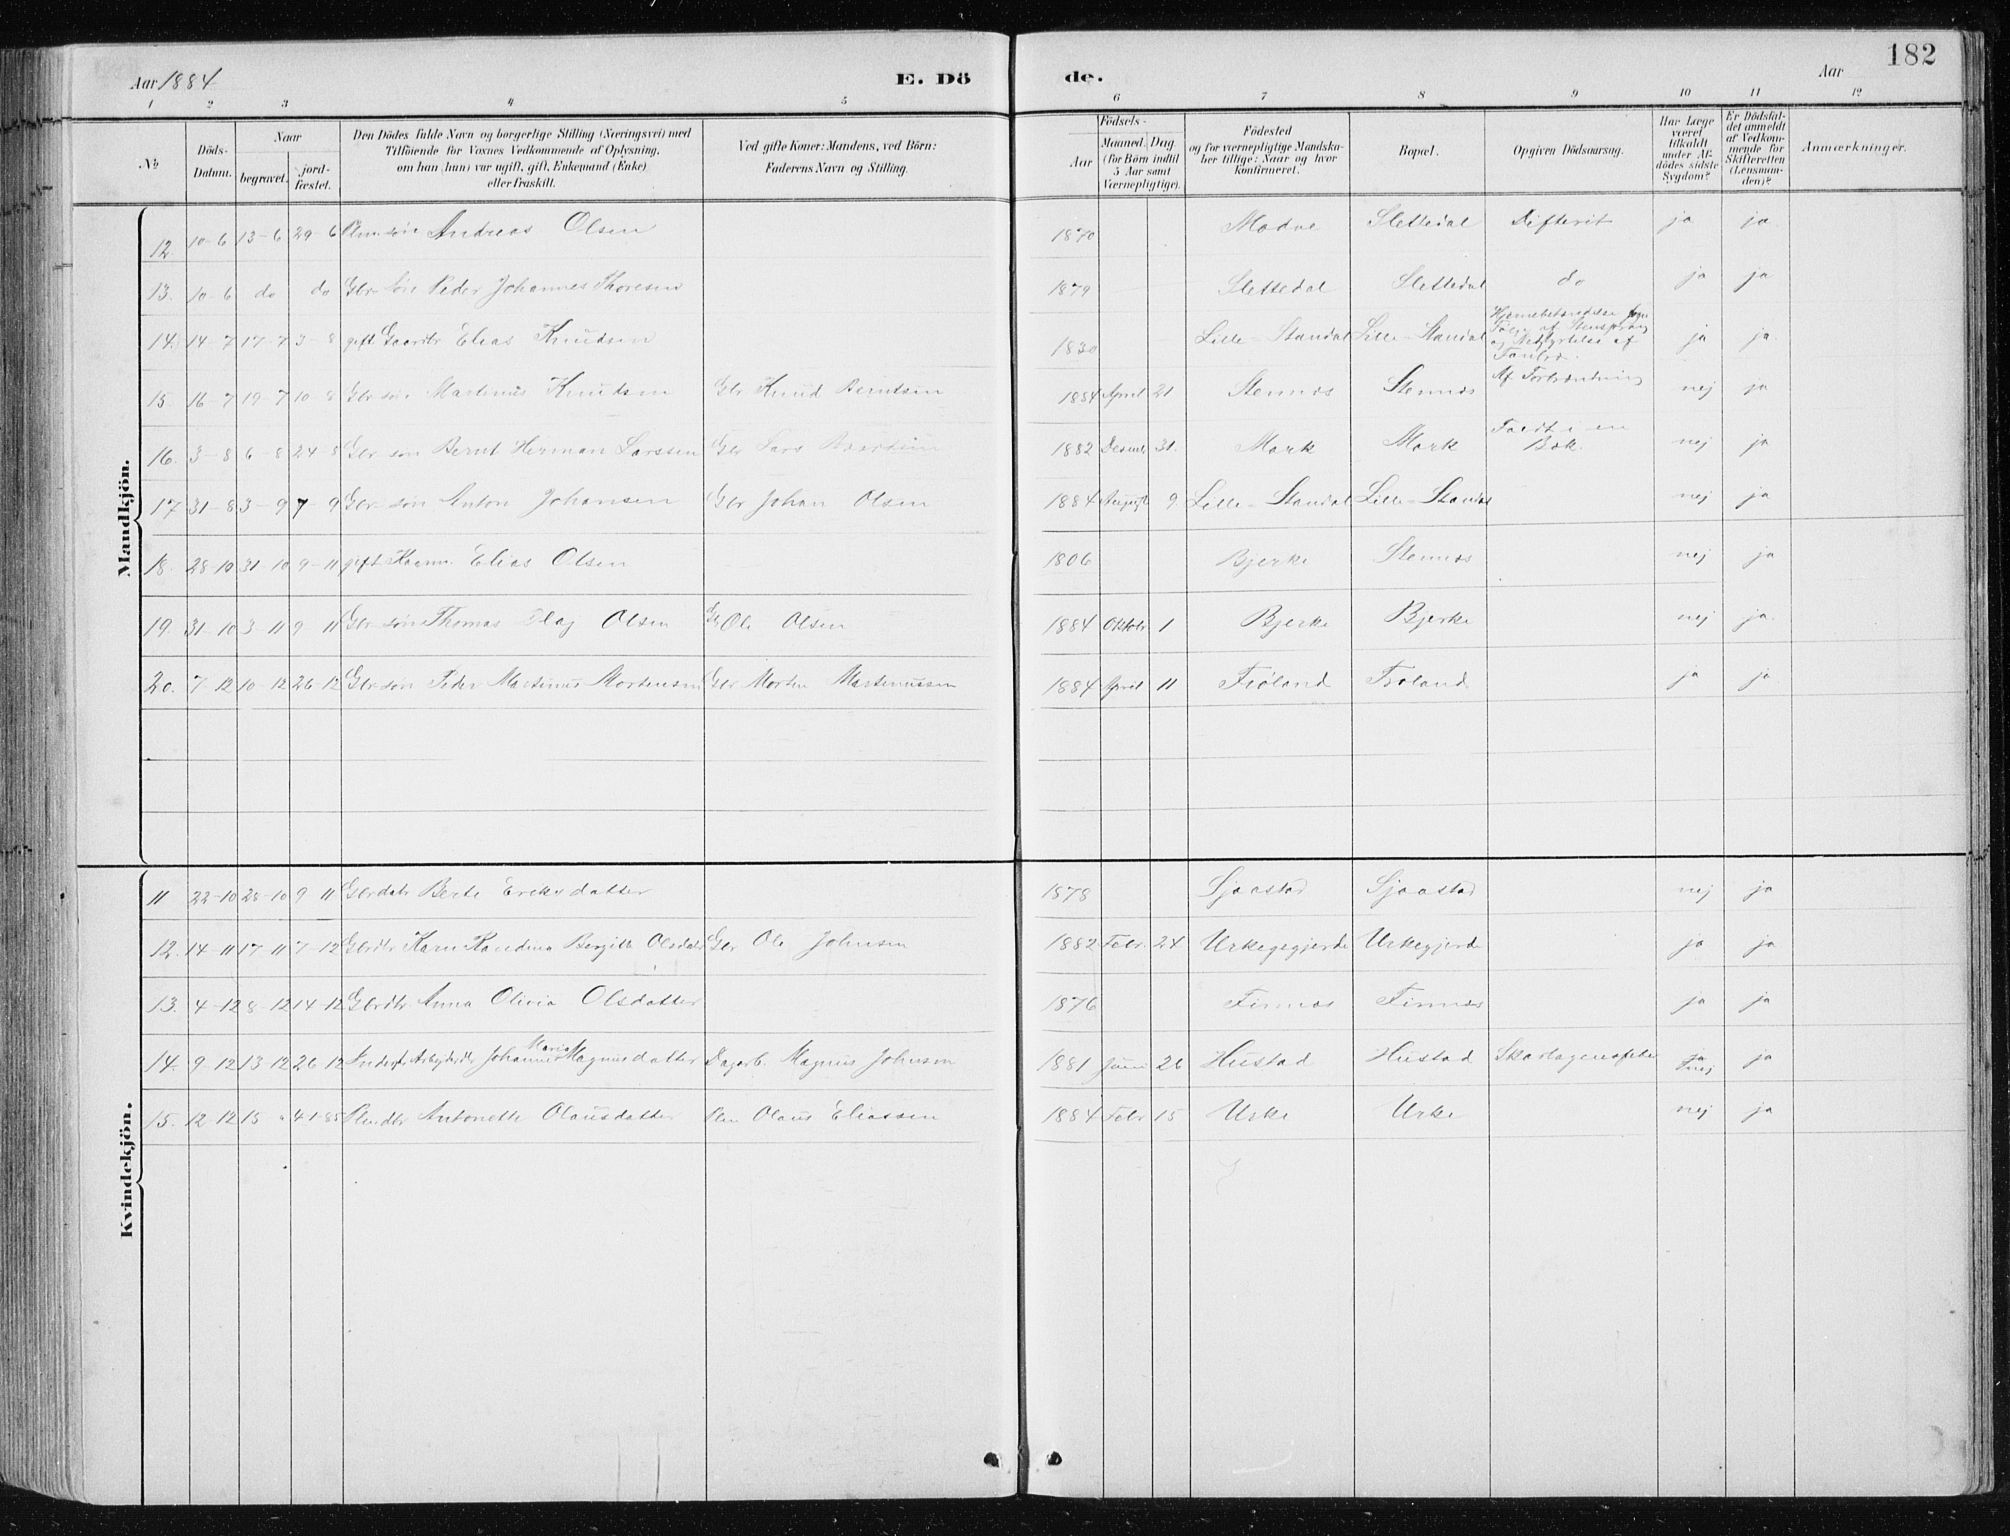 182
Aar 1884 E. Dö de. Aar
1 2 3 4 5 6 7 8 9 10 11 12
№
Döds-Datum.
Naar begravet. jordfæstet.
Den Dödes fulde Navn og borgerlige Stilling (Næringsvei) med Tilföiende for Voxnes Vedkommende af Oplysning, om han (hun) var ugift, gift, Enkemand (Enke) eller fraskilt.
Ved gifte Koner: Mandens, ved Börn: Faderens Navn og Stilling.
Födsels- Aar Maaned. Dag (for Börn indtil 5 Aar samt Værnepligtige).
Födested og for værnepligtige Mandskaber tillige: Naar og hvor konfirmeret.
Bopæl.
Opgiven Dödsaarsag.
Har Læge været tilkaldt under Afdödes sidste Sygdom?
Er Dödsfaldet anmeldt af Vedkommende for Skifteretten (Lensmanden)?
Anmærkninger.
Mandkjön.
12. 10-6 13-6 29-6 søn Andreas Olsen 1870 Modve Slettedal Difterit ja ja
13. 10-6 do do Gbr søn Peder Johannes Thoresen 1879 Slettedal Slettedal do ja ja
14. 14-7 17-7 3-8 gift Gaardbr Elias Knudsen 1830 Lille-Standal Lille-Standal af Stensprang og af ja ja
15. 16-7 19-7 10-8 Gbr søn Martinus Knudsen Gbr Knud Berntsen 1884 April 21 Stennæs Stennæs Af nej ja
16. 3-8 6-8 24-8 Gbr søn Bernt Herman Larssen Gbr Lars 1882 Decmb. 31. Mork Mork i en Bæk. nej ja
17. 31-8 3-9 7-9 Gbr søn Anton Johansen Gbr Johan Olsen 1884 August 9. Lille-Standal Lille-Standal nej ja
18. 28-10 31-10 9-11 gift Elias Olsen 1806 Bjerke Stennæs nej ja
19. 31-10 3-11 9-11 Gbr søn Thomas Olaj Olsen Gb Ole Olsen 1884 Oktobr. 1 Bjerke Bjerke nej ja
20. 7-12 10-12 26-12 Gbr søn Peder Martinus Mortensen Gbr Morten Martinussen 1884 April 11 Frøland Frøland ja ja
Kvindekjön.
11 22-10 28-10 9-11 Gbrdatr Berte Eriksdatter 1878 Sjaastad Sjaastad nej ja
12. 14-11 17-11 7-12 Gbrdtr Karn Kandina Bergitte Olsdatr Gbr Ole Johnsen 1882 Febr. 24 Urkegegjerde Urkegjerde ja ja
13. 4-12 8-12 14-12 Gbrdtr Anna Olivia Olsdatter 1876 Finnæs Finnæs ja ja
14. 9-12 13-12 26-12 Arbejderdtr Johanne Marie Magnusdatter Dagarb. Magnus Johnsen 1881 Juni 26 Hustad Hustad nej ja
15. 12-12 15 " 4-1-85 Antonette Olausdatter Olaus Eliassen 1884 Febr 15 Urke Urke nej ja